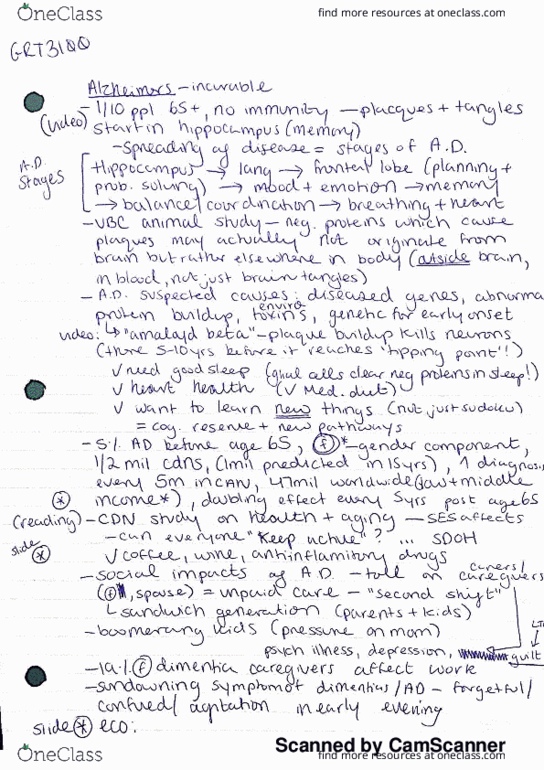 OneClass
find more resources at oneclass.com
GRT3100
Alzheimers - incurable
- 1/10 ppl 65+, no immunity - placques + tangles
(video) start in hippocampus (memory)
- spreading of disease = stages of A.D.
A.D. Stages
Hippocampus → lang → frontal lobe (planning +
prob. solving) → mood + emotion → memory
→ balance/coordination → breathing + heart
- UBC animal study - neg. proteins which cause
plaques may actually not originate from
brain but rather elsewhere in body (outside brain,
in blood, not just brain tangles)
- A.D. suspected causes: diseased genes, abnorma
protein buildup, enviro toxins, genetic for early onset
video: ↳ "amalayd beta" - plaque buildup kills neurons
(there 5-10yrs before it reaches "tipping point"!)
✓ need good sleep (glial cells clear neg proteins in sleep!)
✓ heart health (✓ Med. diet)
✓ want to learn new things (not just sudoku)
= cog. reserve + new pathways
- 5% AD before age 65, (f)* - gender component,
1/2 mil cdns, (1mil predicted in 15yrs), 1 diagnosi
every 5m in CAN, 47mil worldwide (low + middle
(*) income*), doubling effect every 5yrs post age 65
(reading) - CDN study on health + aging - SES affects
- can everyone "keep active"? ... SDOH
slide (*)
✓ coffee, wine, antiinflamitory drugs
- social impacts of A.D. - toll on carers/ caregivers
(f, spouse) = unpaid care - "second shift"
↳ sandwich generation (parents + kids)
- boomerang kids (pressure on mom)
psych illness, depression, guilt
- 19% (f) dimentia caregivers affect work
- sundowning symptom of dimentias/AD - forgetful/
confued/ agitation in early evening
slide (*) eco:
Scanned by CamScanner
OneClass
find more resources at oneclass.com